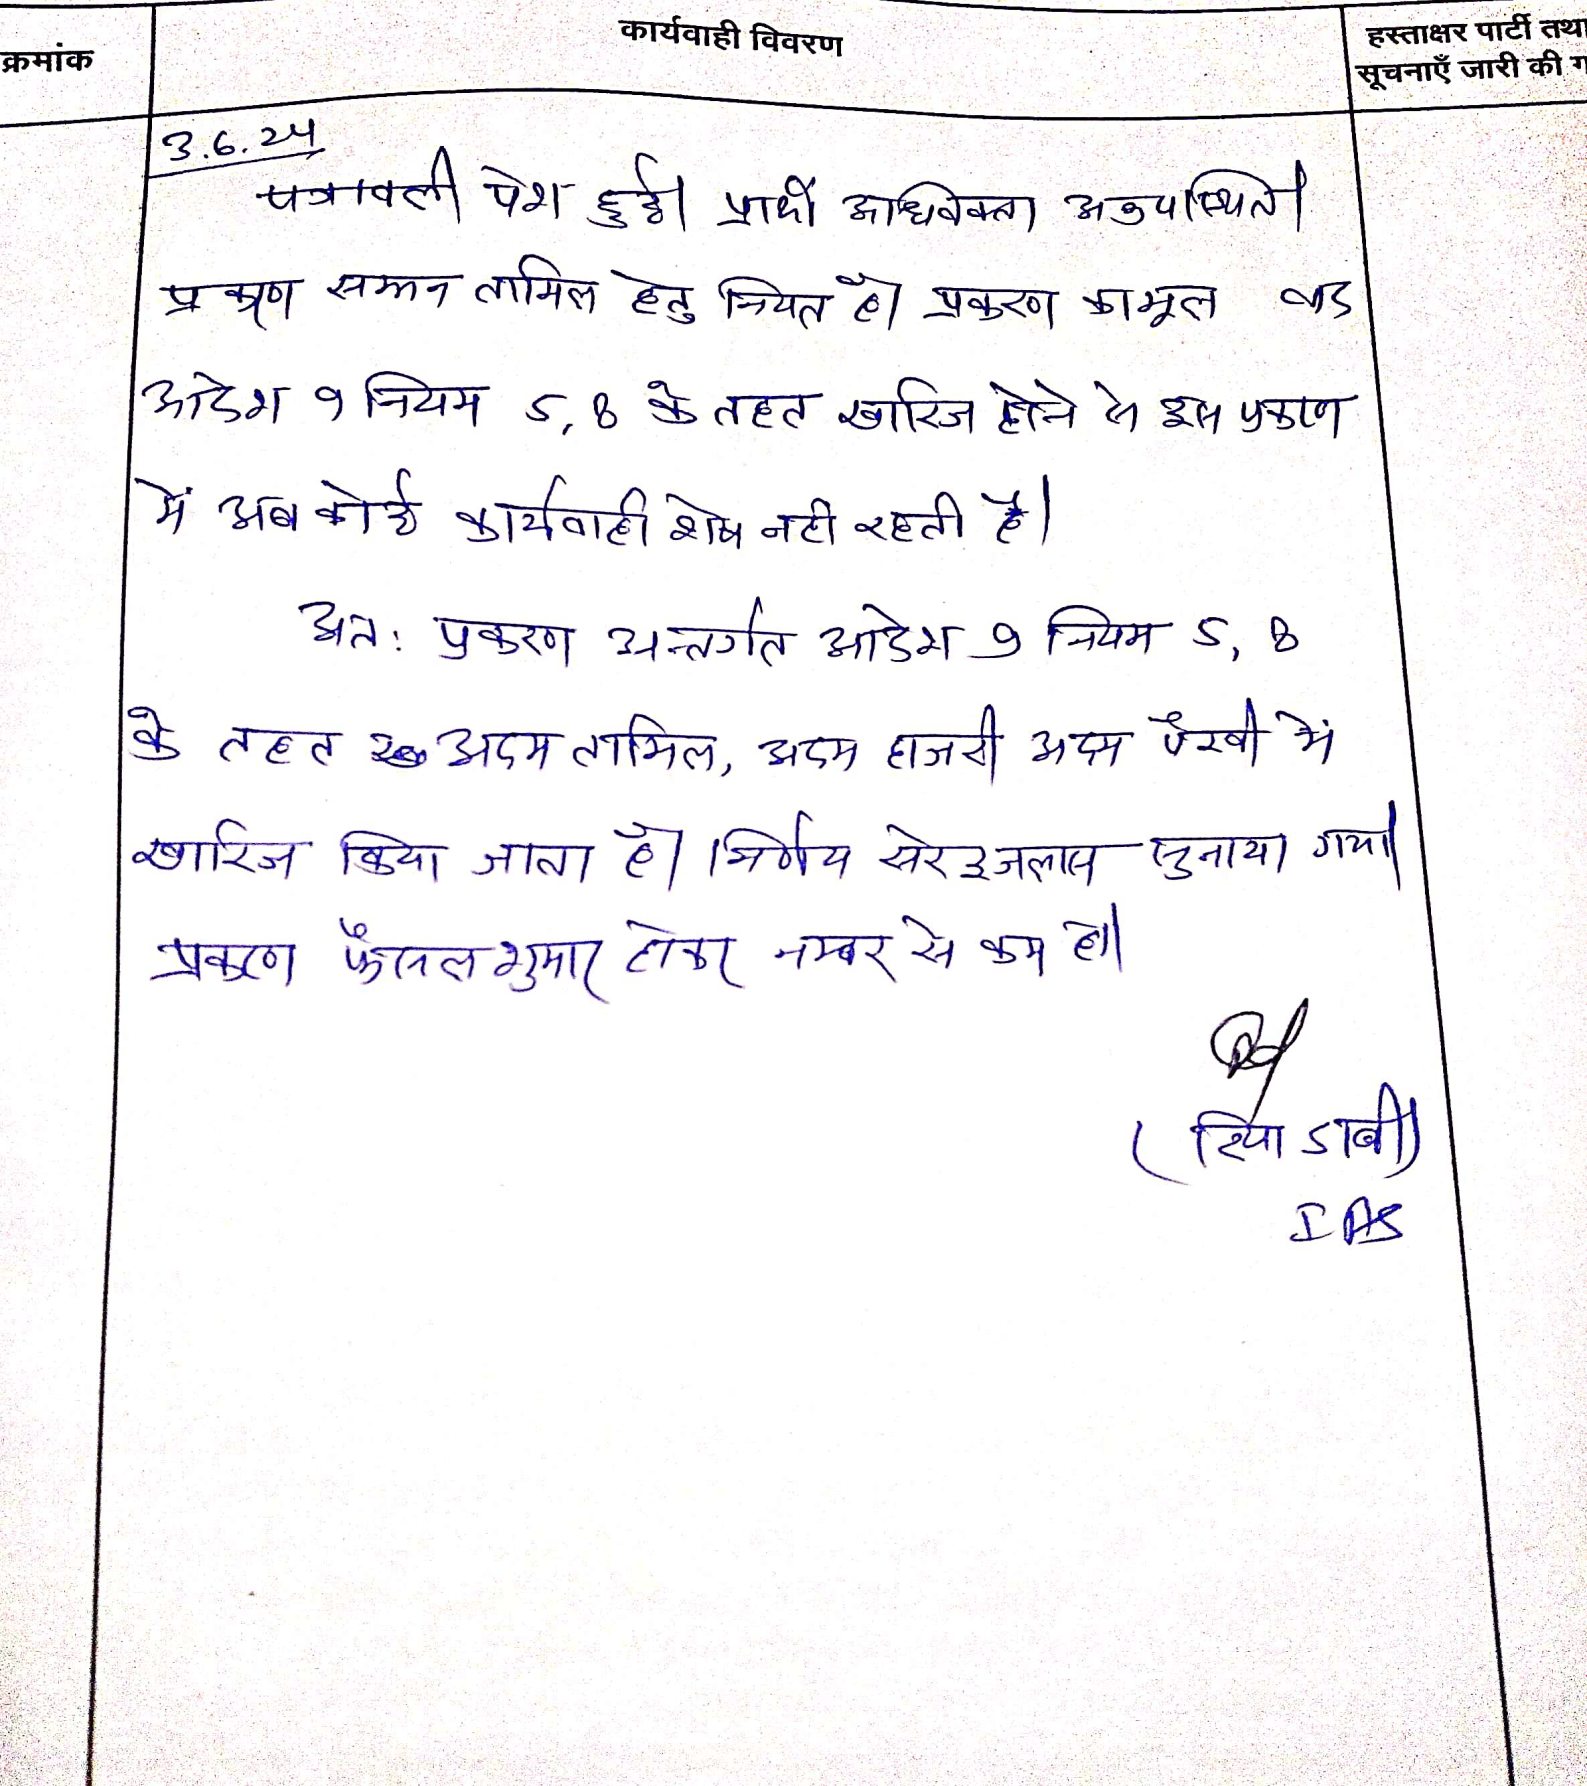 क्रमांक
कार्यवाही विवरण
हस्ताक्षर पार्टी तथा
सूचनाएँ जारी की ग
3.6.24
पत्रावली पेश हुई। प्रार्थी अधिवक्ता अनुपस्थित।
प्रकरण सम्मन तामिल हेतु नियत है। प्रकरण का मूल वाद
आदेश 9 नियम 5, 8 के तहत खारिज होने से इस प्रकरण
में अब कोई कार्यवाही शेष नही रहती है।
अत: प्रकरण अन्तर्गत आदेश 9 नियम 5, 8
के तहत अदम तामिल, अदम हाजरी अदम पैरवी में
खारिज किया जाता है। निर्णय सरे इजलास सुनाया गया।
प्रकरण फैसल शुमार होकर नम्बर से कम हो।
(रिया डाबी)
IAS